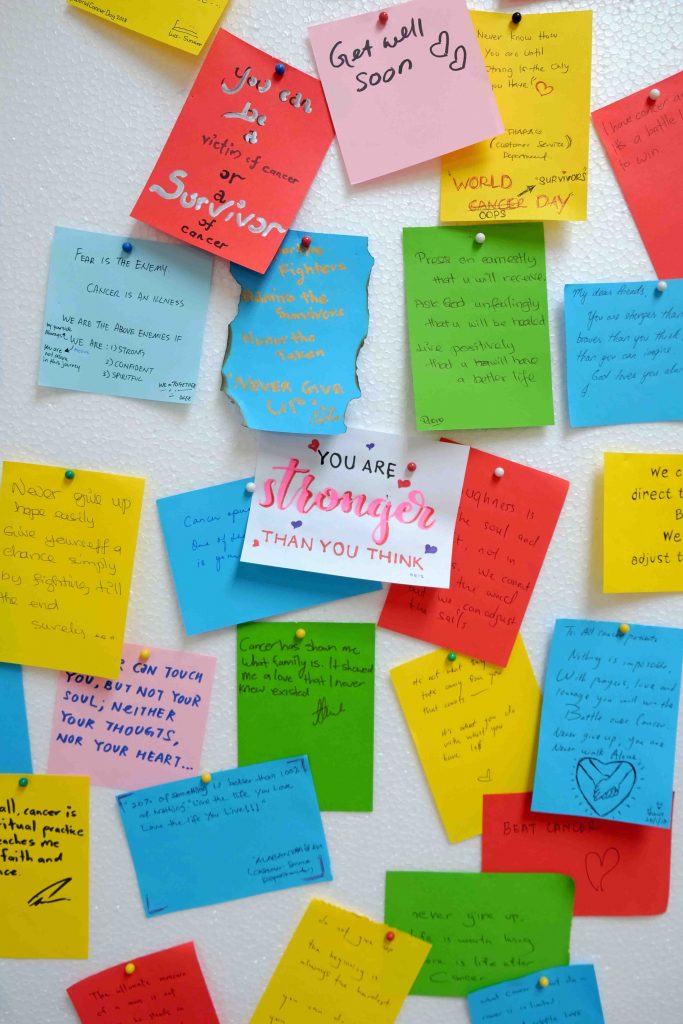 Cancer Day 2018
Get well
soon
Never Know How
You are Until
Strong Is the Only
You have"
(Customer Service)
Department
"WORLD "SURVIVORS"
CANCER DAY"
OOPS
You can
be
a
victim of cancer
or
a
Survivor
of
cancer
I have cancer
a battle I
to win
FEAR IS THE ENEMY
CANCER IS AN ILLNESS
WE ARE THE ABOVE ENEMIES IF
WE ARE : 1) STRONG
2) CONFIDENT
3) SPIRITFUL
You are
not alone
in this journey
WE R TOGETHER
the
Fighters
Admire the
Survivors
Honor the
Taken
"NEVER GIVE
UP"
Pray so earnestly
that u will receive
Ask God unfailingly
that u will be healed
Live positively
that u will have
a better life
My dear friends,
You are stronger than
braver than you think
than you can imagine
God loves you
YOU ARE
stronger
THAN YOU THINK
Never give up
hope easily
Give yourself a
chance simply
by fighting till
the end
Surely ...
Cancer
One of
is
the soul and
not in
We cannot
the wind
but we can adjust
the sails
We c
direct t
B
We
adjust t
CAN TOUCH
YOU, BUT NOT YOUR
SOUL; NEITHER
YOUR THOUGTS,
NOR YOUR HEART...
Cancer has shown me
what family is. It showed
me a love that I never
knew existed
It's not what
take away from you
that counts
It's what you do
with what you
have left
To All cancer patients
Nothing is impossible.
With prayers, love and
courage you will win the
Battle over Cancer.
Never give up, you are
Never Walk Alone
all, cancer is
ritual practice
teaches me
faith and
nce.
"20% of something is better than 100%
of Nothing" "Live the life you love
Love the life You Live!!!"
(Customer Service
Department)
BEAT CANCER
never give up.
life is worth living
there is life after
Cancer
do not give up
the beginning is
always the hardest
you can do
The ultimate measure
of a man is not
he stands in
what cancer
cancer is limited